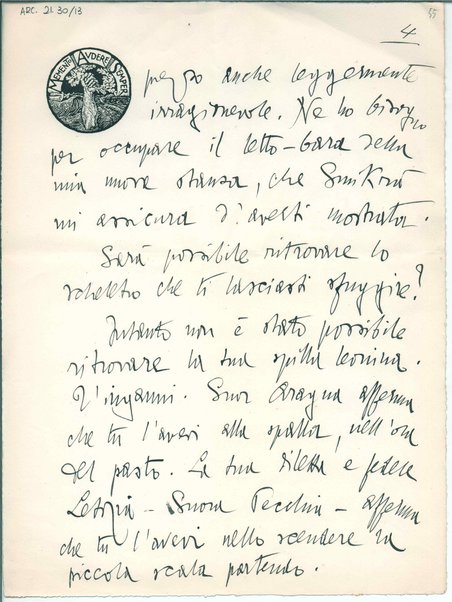 ARC. 21. 30/13
4
MEMENTO AVDERE SEMPER
pezzo anche leggermente
irragionevole. Ne ho bisogno
per occupare il letto-bara della
mia nuova stanza, che
mi assicura d'averti mostrata.
Sarà possibile ritrovare lo
scheletro che ti lasciasti sfuggire?
Intanto non è stato possibile
ritrovare la tua spilla leonina.
T'inganni. Suor Aragna afferma
che tu l'avevi alla spalla, nell'ora
del pasto. La tua diletta e fedele
Letizia - Suora Pecchia - afferma
che tu l'avevi nello scendere la
piccola scala partendo.